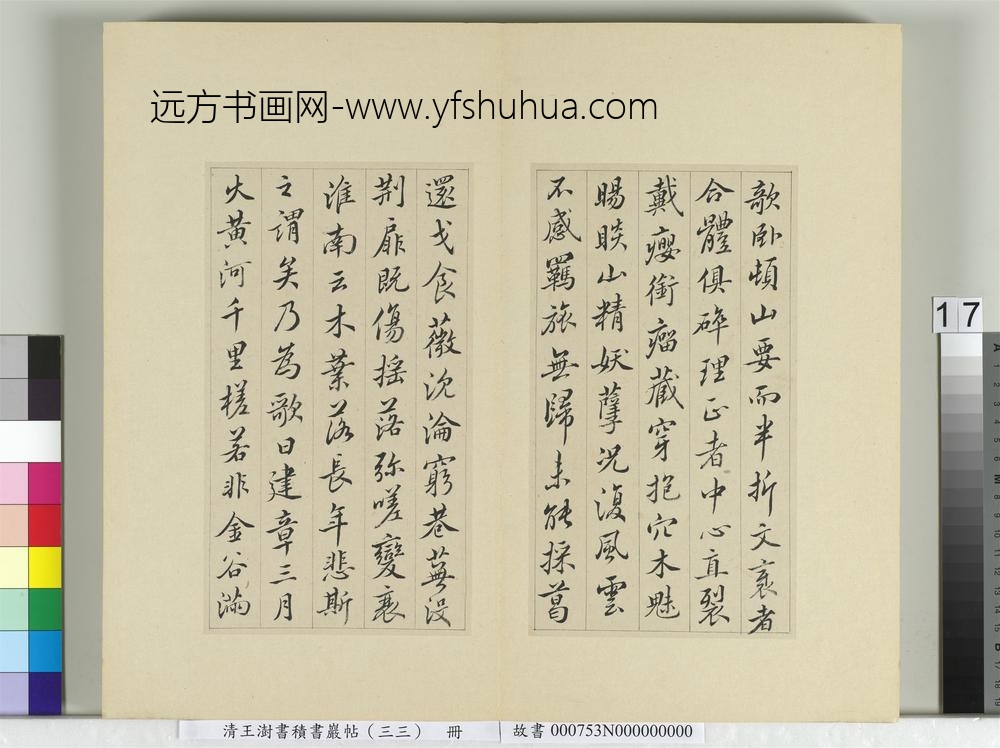 远方书画网-www.yfshuhua.com
欹卧頓山要而半折文衰者
合體俱碎理正者中心直裂
戴癭銜瘤藏穿抱穴木魅
賜睒山精妖孽況復風雲
不感羈旅無歸未能採葛
還戈食薇沈淪窮巷蕪没
荆扉既傷搖落弥嗟變衰
淮南云木葉落長年悲斯
之謂矣乃為歌曰建章三月
火黄河千里槎若非金谷滿
17
清王澍書積書巖帖（三三） 冊
故書 000753N000000000